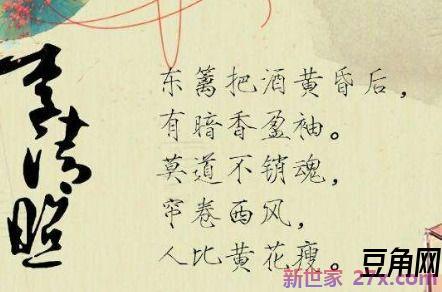 李清照
东篱把酒黄昏后，
有暗香盈袖。
莫道不销魂，
帘卷西风，
人比黄花瘦。
豆角网
新世家 27x.com